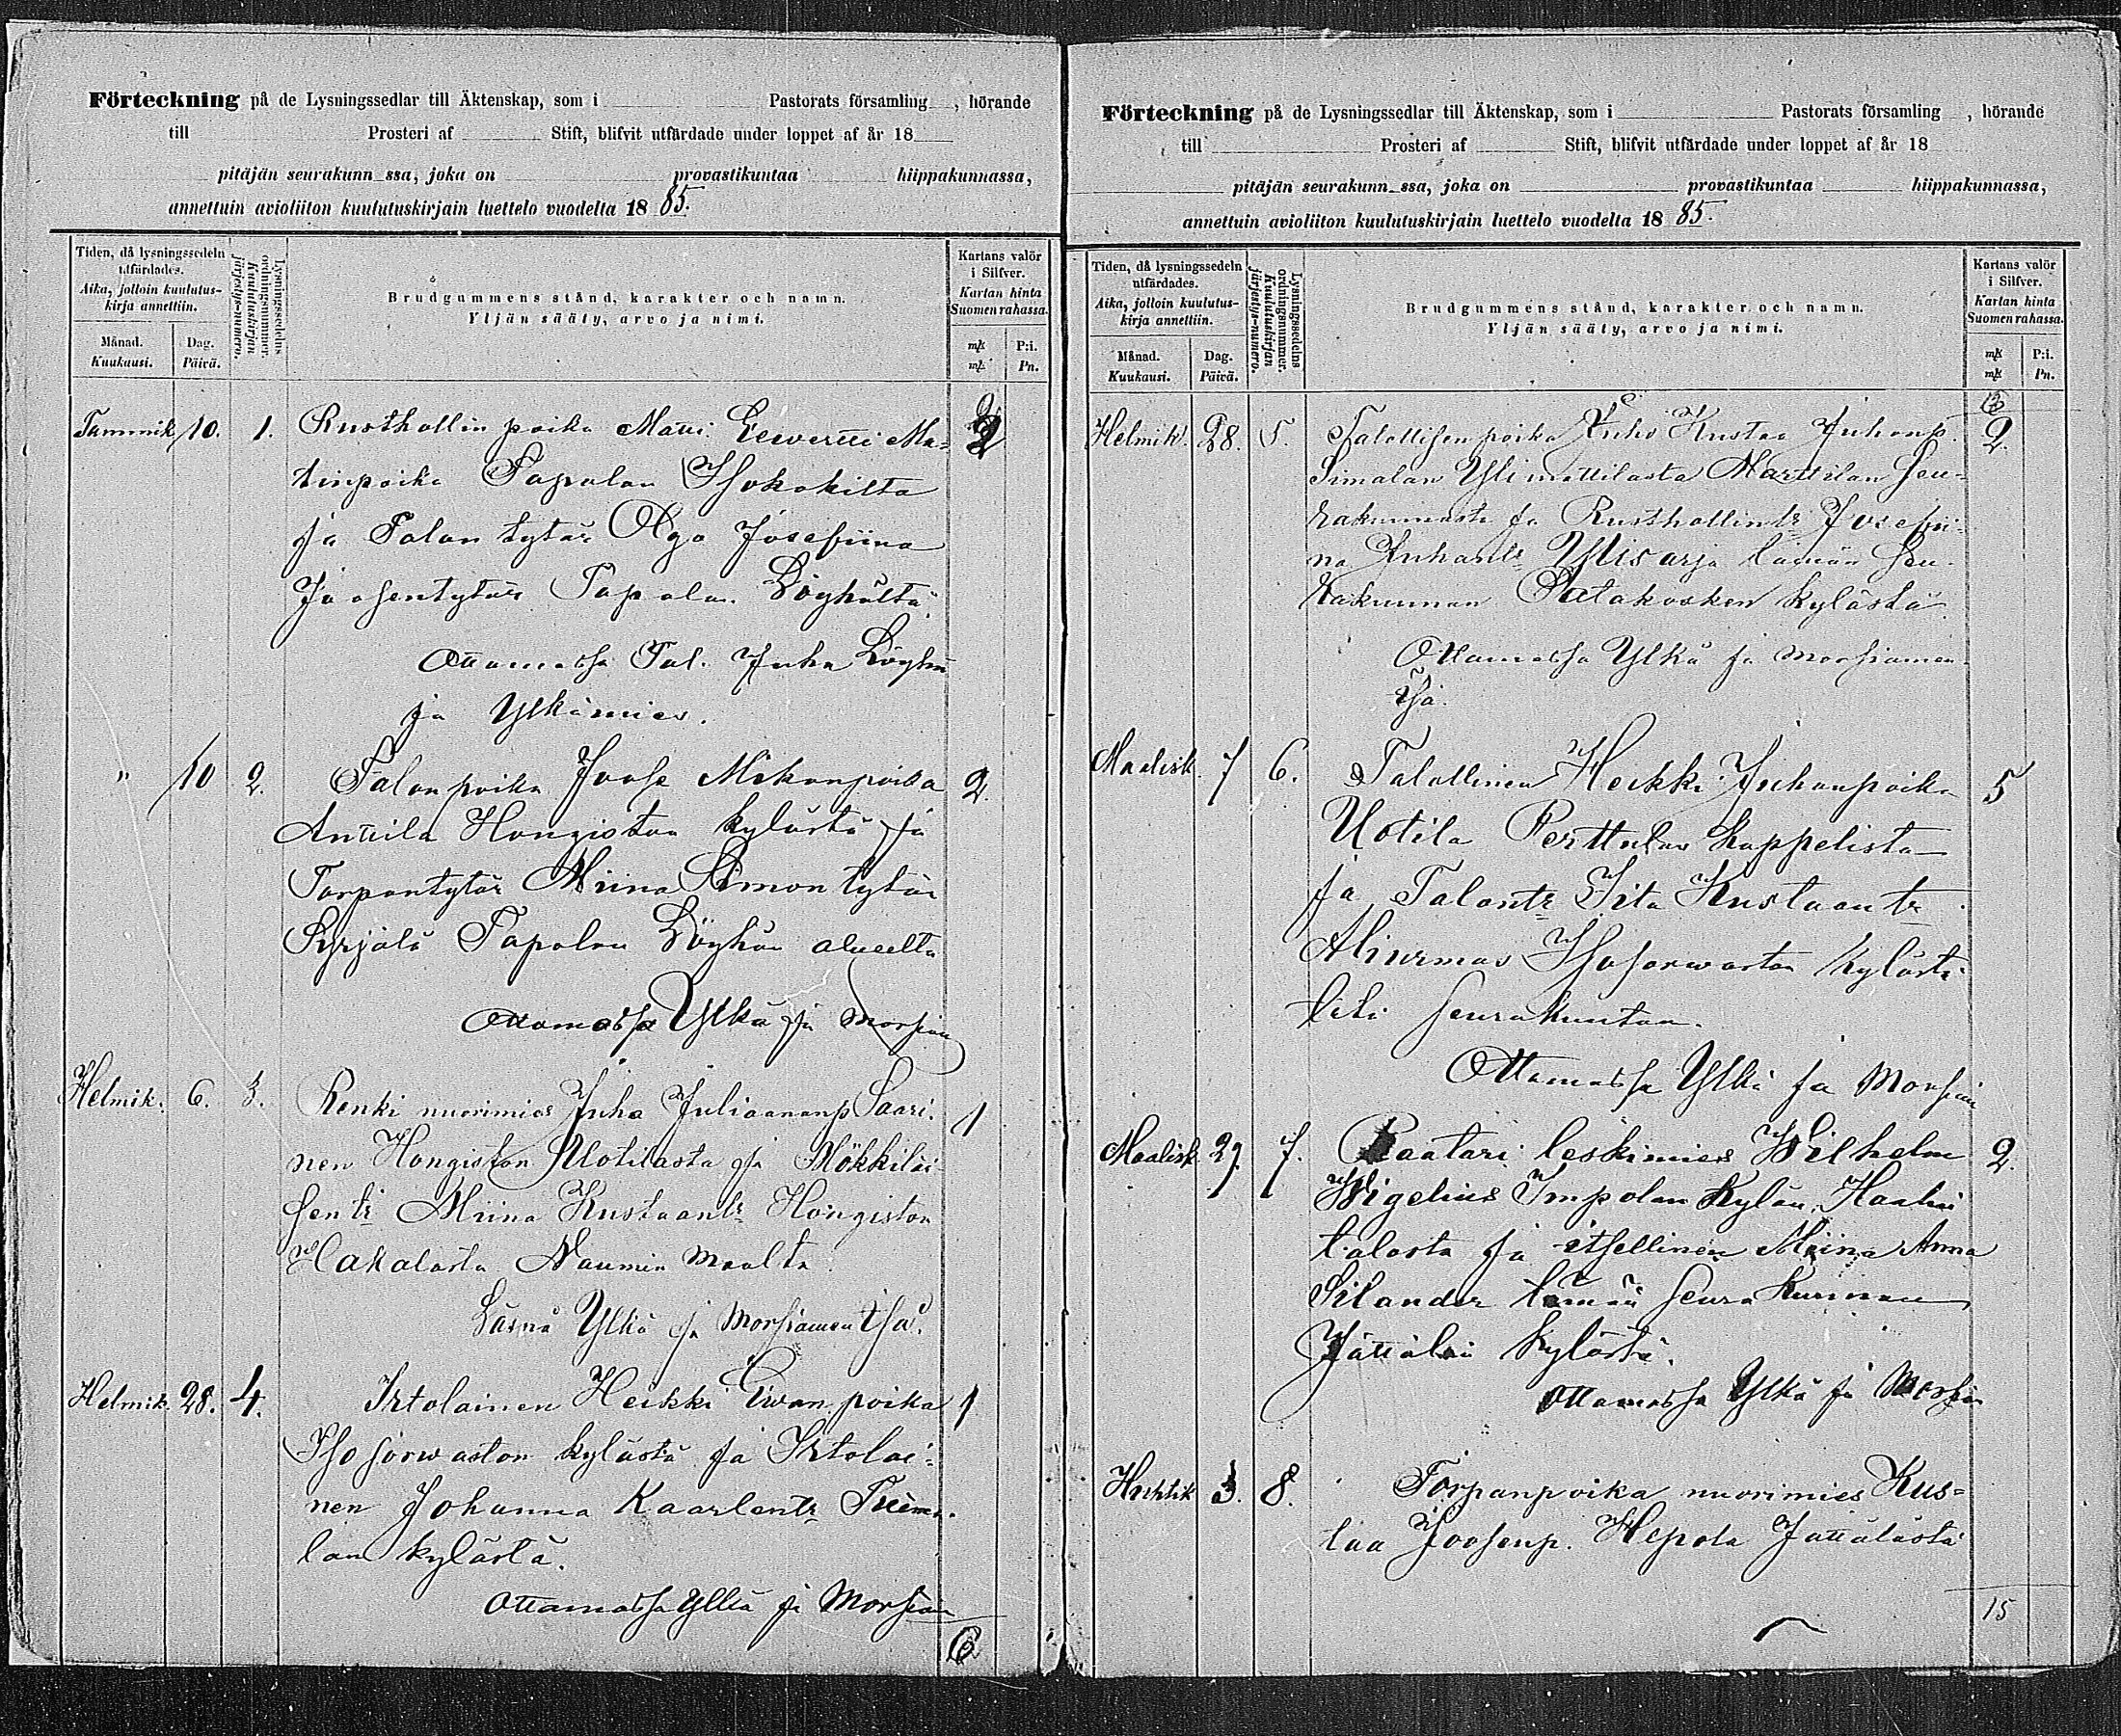 Förteckning på de Lysningssedlar till Äktenskap, som i Pastorats församling , hörande
till Prosteri af Stift, blifvit utfärdade under loppet af år 18
pitäjän seurakunn ssa, joka on provastikuntaa hiippakunnassa,
annettuin avioliiton kuulutuskirjain luettelo vuodelta 18 85.
Tiden, då lysningssedeln utfärdades.
Aika, jolloin kuulutus-kirja annettiin.
Månad. Kuukausi.
Dag. Päivä.
Lysningssedelns ordningsnummer.
Kuulutuskirjan järjestys-numero.
Brudgummens stånd, karakter och namn.
Yljän sääty, arvo ja nimi.
Kartans valör i Silfver.
Kartan hinta Suomen rahassa.
mk P:i.
mk Pn.
Tammik. 10. 1. Rusthollin poika Matti Eewertti Ma- 2
tinpoika Tapolan Isokokilta
ja Talon tytär Olga Josefiina
Joosentytär Tapolan Löyhältä.
Ottamassa Tal. Juha Löyhä
ja Ylkämies.
" 10 2. Talonpoika Joose Mikonpoika 2.
Anttila Hongiston kylästä ja
Torpantytär Miina Simontytär
Syrjälä Tapolan Löyhän alueelta
Ottamassa Ylkä ja Morsian
Helmik. 6. 3. Renki nuorimies Juha Juliaananp Saari- 1
nen Hongiston Uotilasta ja Mökkiläi-
sentr Miina Kustaantr Hongiston
Hakalasta Naumin maalta.
Läsnä Ylkä ja Morsiamen isä.
Helmik. 28. 4. Irtolainen Heikki Eewanpoika 1
Isosorwaston kylästä ja Irtolai-
nen Johanna Kaarlentr Tuimu-
lan kylästä.
Ottamassa Ylkä ja Morsian
6
Förteckning på de Lysningssedlar till Äktenskap, som i Pastorats församling , hörande
till Prosteri af Stift, blifvit utfärdade under loppet af år 18
pitäjän seurakunn ssa, joka on provastikuntaa hiippakunnassa,
annettuin avioliiton kuulutuskirjain luettelo vuodelta 18 85.
Tiden, då lysningssedeln utfärdades.
Aika, jolloin kuulutus-kirja annettiin.
Månad. Kuukausi.
Dag. Päivä.
Lysningssedelns ordningsnummer.
Kuulutuskirjan järjestys-numero.
Brudgummens stånd, karakter och namn.
Yljän sääty, arvo ja nimi.
Kartans valör i Silfver.
Kartan hinta Suomen rahassa.
mk P:i.
mk Pn.
Helmik. 28. 5. Talollisen poika Juho Kustaa Juhanp. 2.
Simalan Ylimattilasta Marttilan Seu-
rakunnasta ja Rusthollintr Josefii-
na Juhantr Ylisarja tämän Seu-
rakunnan Patakosken kylästä
Ottamassa Ylkä ja morsiamen
isä.
Maalisk. 7 6. Talollinen Heikki Juhanpoika 5
Uotila Perttulan kappelista
ja Talontr Iita Kustaantr
Alinemas Isosorwaston kylästä
tätä Seurakuntaa.
Ottamassa Ylkä ja Morsian
Maalisk. 29. 7. Raatari leskimies Wilhelm 2.
Wigelius Impolan Kylän Haalin
talosta ja itsellinen Miina Anna
Silander tämän Seurakunnan
Jättälän kylästä.
Ottamassa Ylkä ja Morsian
Huhtik 3. 8. Torpanpoika nuorimies Kus-
taa Joosenp. Hepola Jättälästä
15